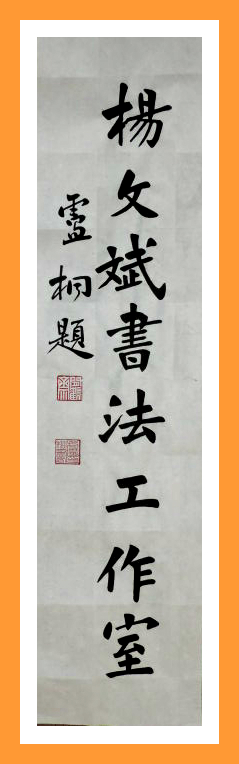 楊文斌書法工作室
盧桐題